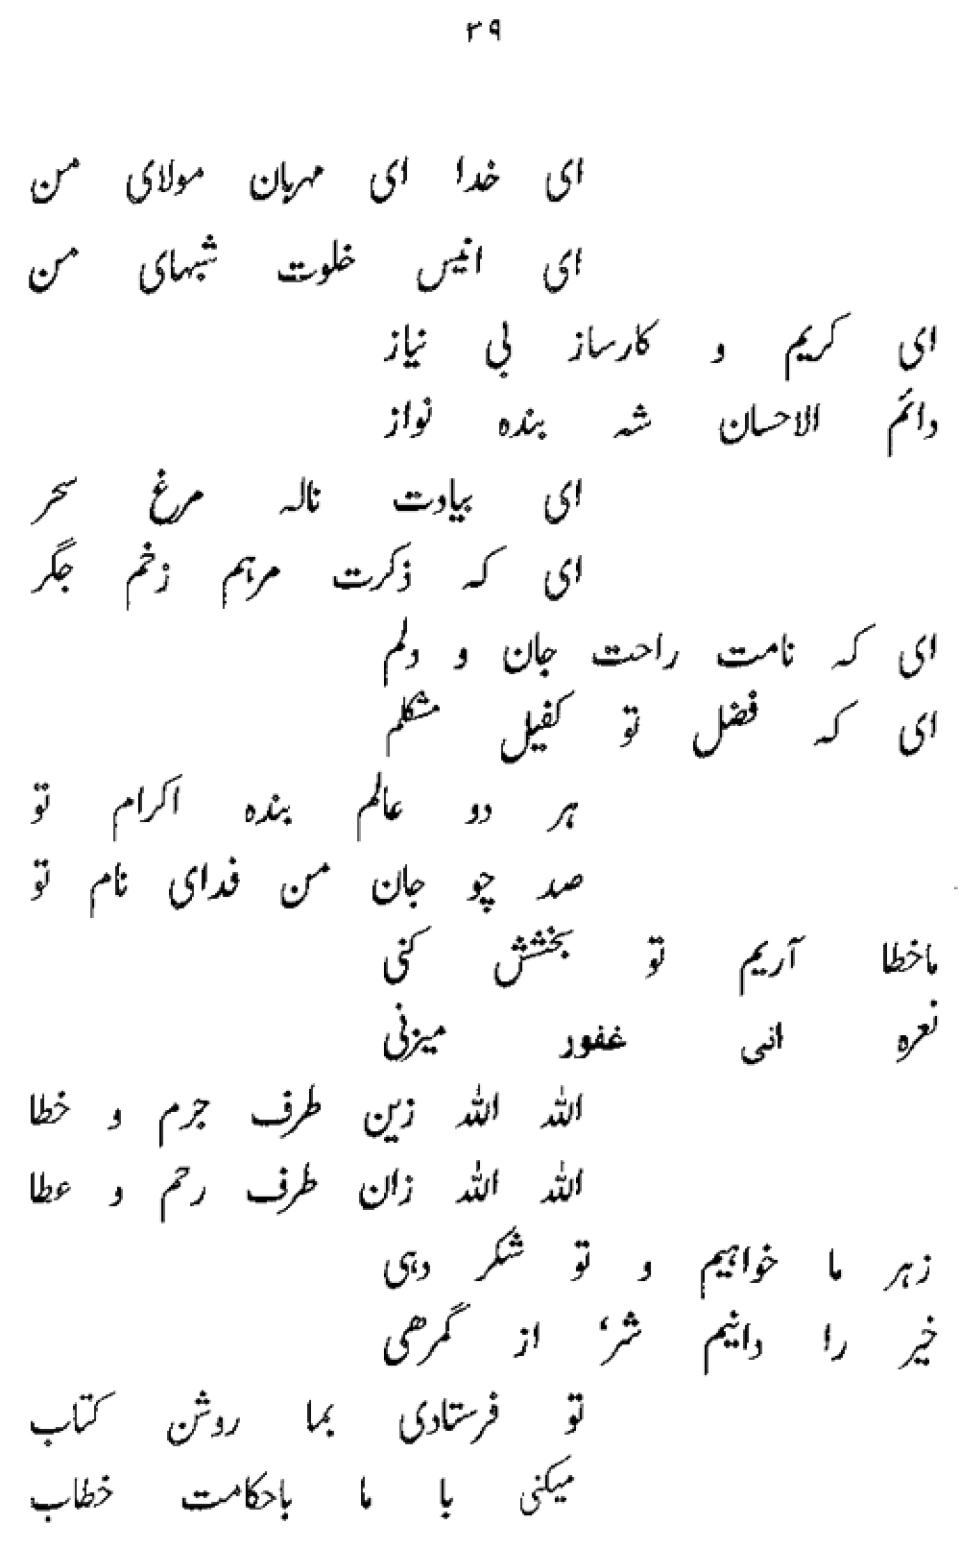 ۳۹
ای خدا ای مهربان مولای من
ای انیس خلوت شبهای من
ای کریم و کارساز بی نیاز
دائم الاحسان شه بنده نواز
ای بیادت ناله مرغ سحر
ای که ذکرت مرہم زخم جگر
ای که نامت راحت جان و دلم
ای که فضل تو کفیل مشکلم
ہر دو عالم بنده اکرام تو
صد چو جان من فدای نام تو
ماخطا آریم تو بخشش کنی
نعره انی غفور میزنی
الله الله زین طرف جرم و خطا
الله الله زان طرف رحم و عطا
زہر ما خواہیم و تو شکر دہی
خیر را دانیم شر، از گمرھی
تو فرستادی بما روشن کتاب
میکنی با ما باحکامت خطاب